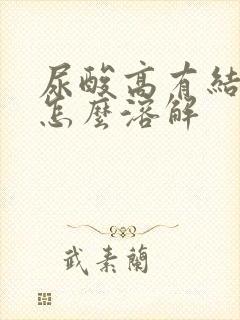 尿酸高有結
怎麼溶解
武素蘭